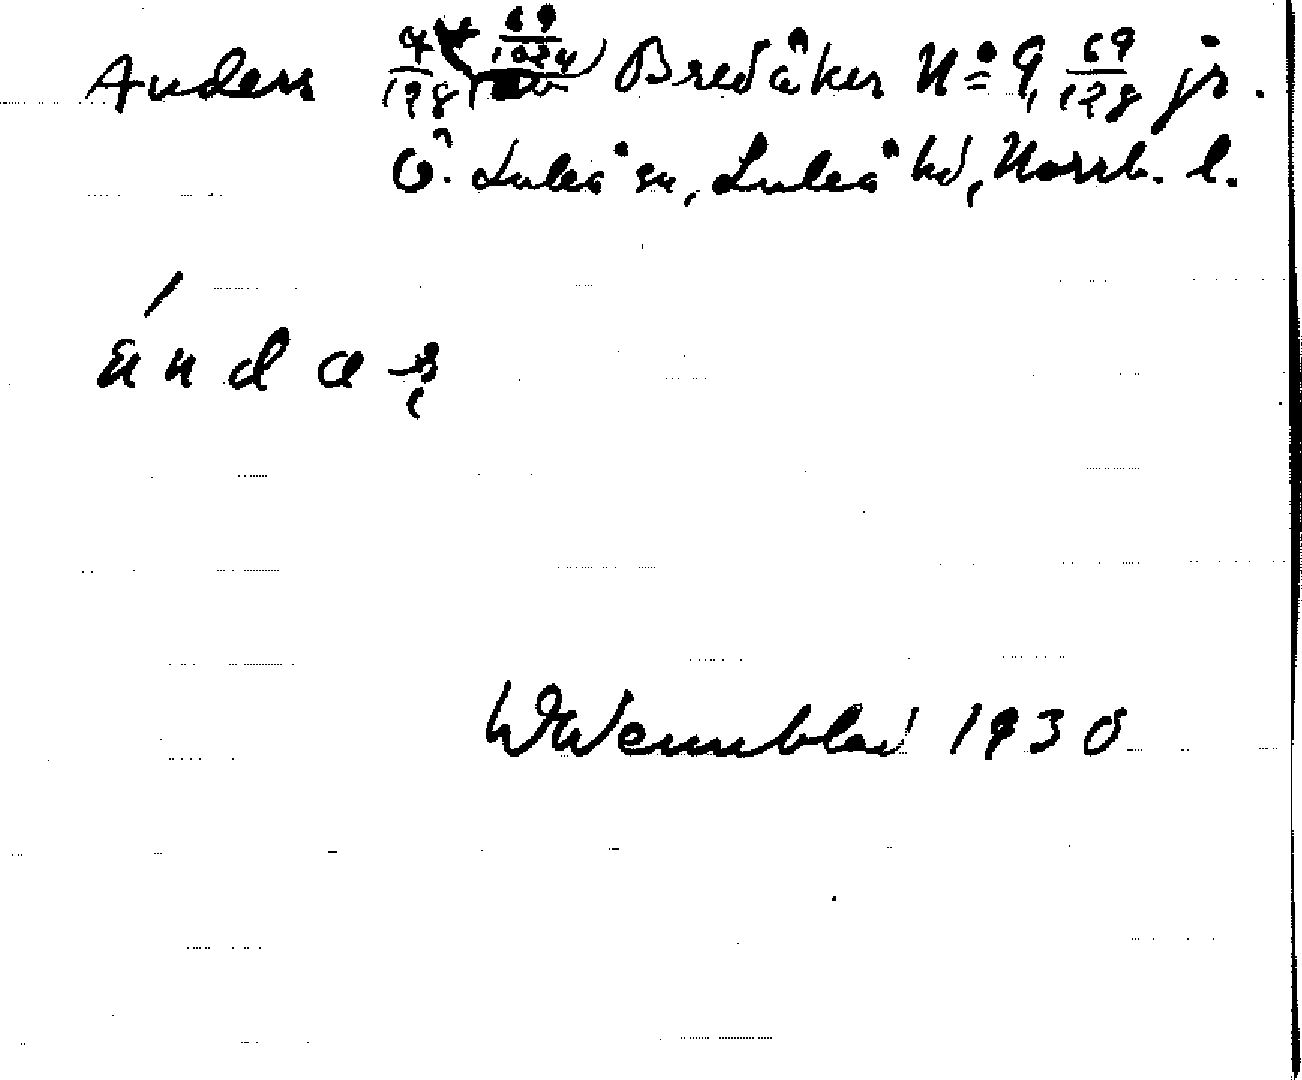 Anders 9/128 (69/1024) Bredåker No 9, 69/128 jr.
Ö. Luleå sn, Luleå hd, Norrb. l.
ándaş
W Wennblad 1930